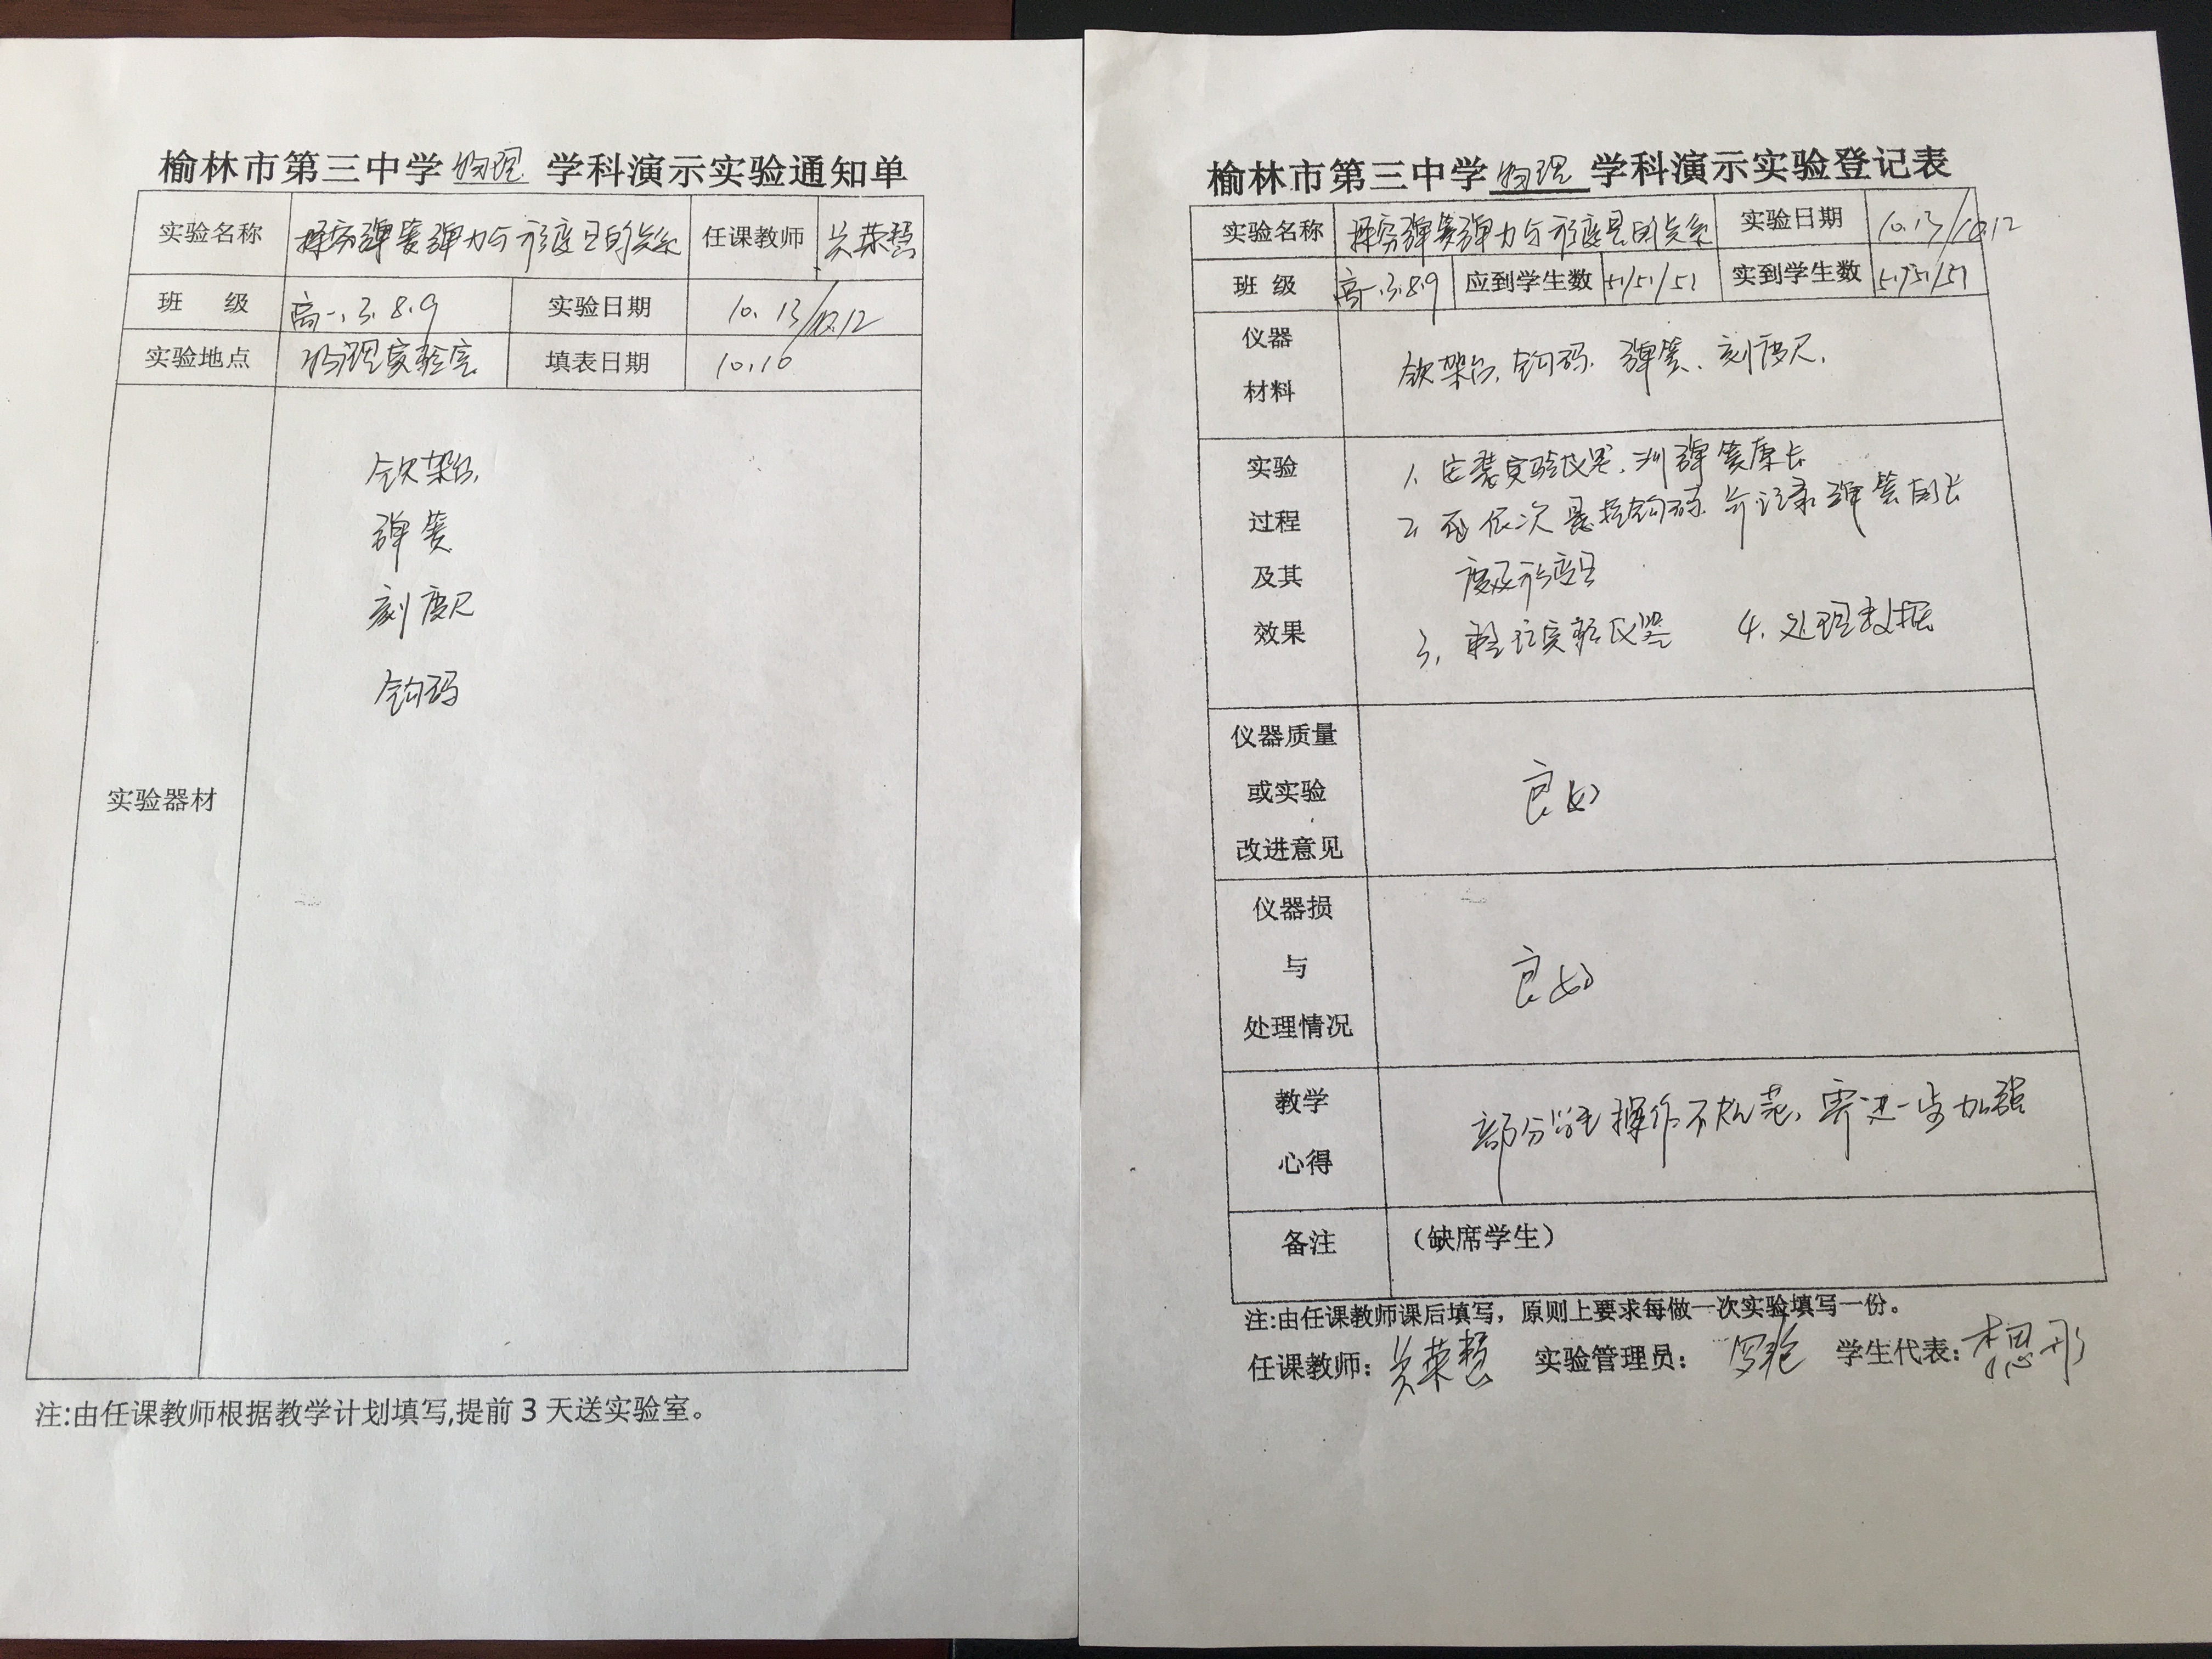 榆林市第三中学 物理 学科演示实验通知单
实验名称 探究弹簧弹力与形变量的关系 任课教师 吴荣慧
班 级 高一.3.8.9 实验日期 10.13/10.12
实验地点 物理实验室 填表日期 10.10
铁架台.
弹簧
刻度尺
钩码
实验器材
注:由任课教师根据教学计划填写,提前3天送实验室。
榆林市第三中学 物理 学科演示实验登记表
实验名称 探究弹簧弹力与形变量的关系 实验日期 10.13/10.12
班 级 高一.3.8.9 应到学生数 51/51/51 实到学生数 51/51/51
仪器
材料
铁架台、钩码、弹簧、刻度尺.
实验
过程
及其
效果
1、安装实验仪器,测弹簧原长
2、依次悬挂钩码 并记录弹簧的长
度及形变量
3、整理实验仪器 4、处理数据
仪器质量
或实验
改进意见
良好
仪器损
与
处理情况
良好
教学
心得
部分学生操作不规范、需进一步加强
备注 (缺席学生)
注:由任课教师课后填写，原则上要求每做一次实验填写一份。
任课教师: 吴荣慧 实验管理员: 学生代表: